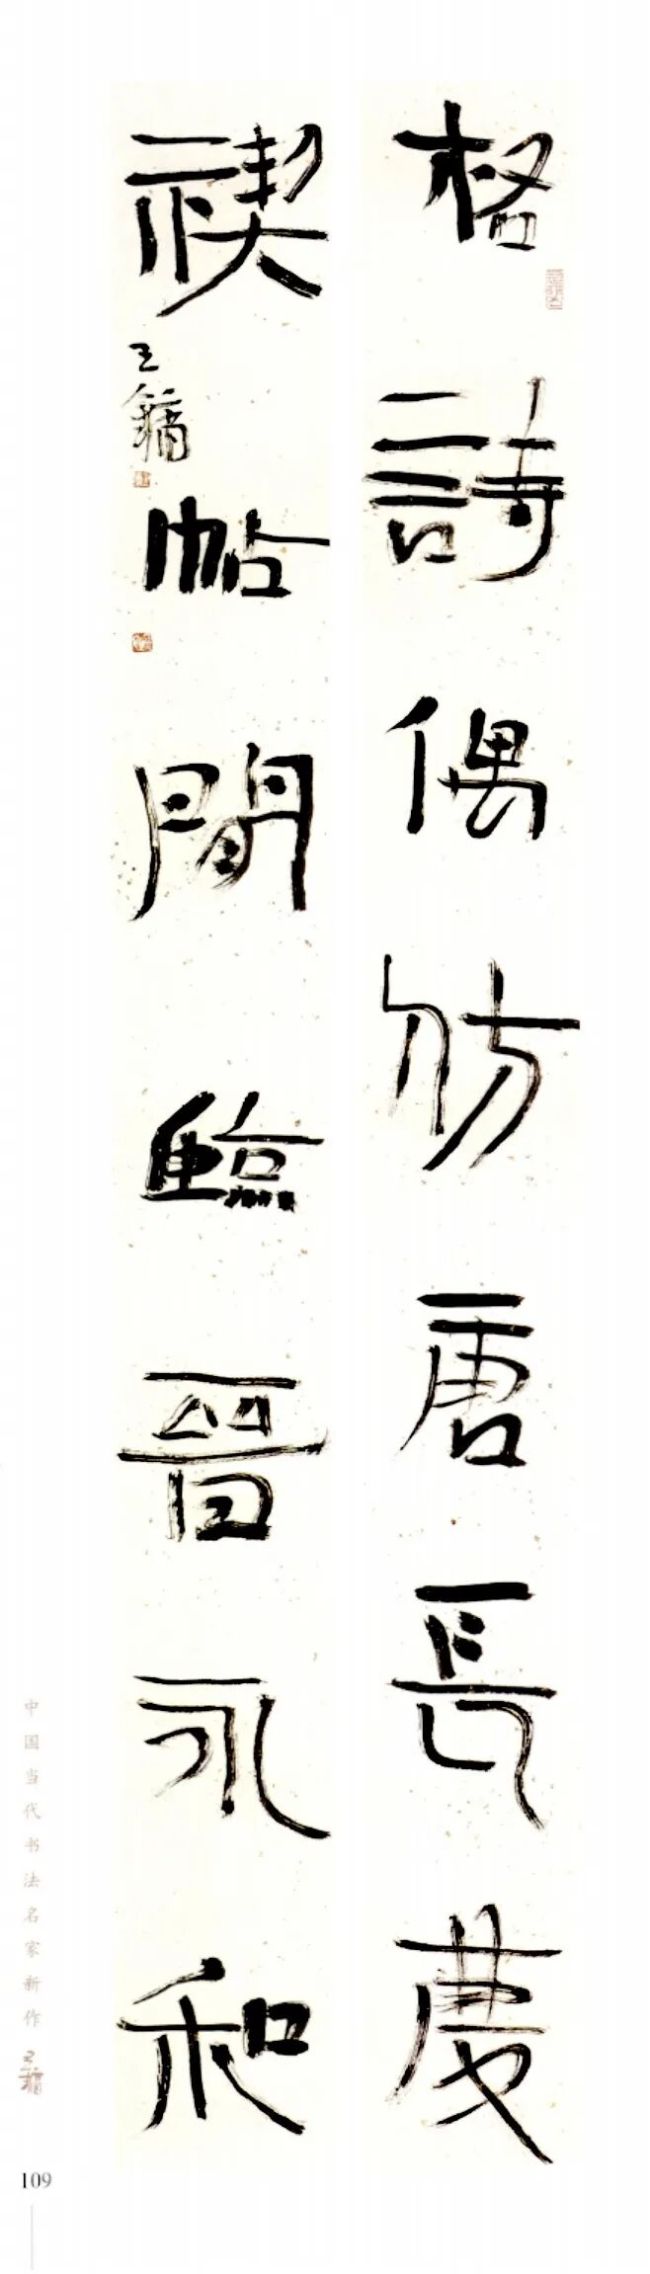 格詩偶仿唐長慶
禊帖閒臨晉永和
王鏞
中国当代书法名家新作
王鏞
109